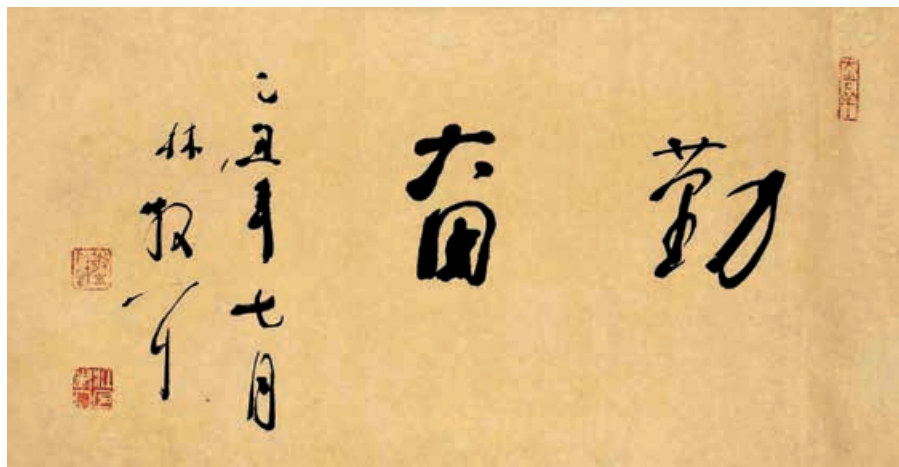 勤奋
乙丑年七月
林散耳